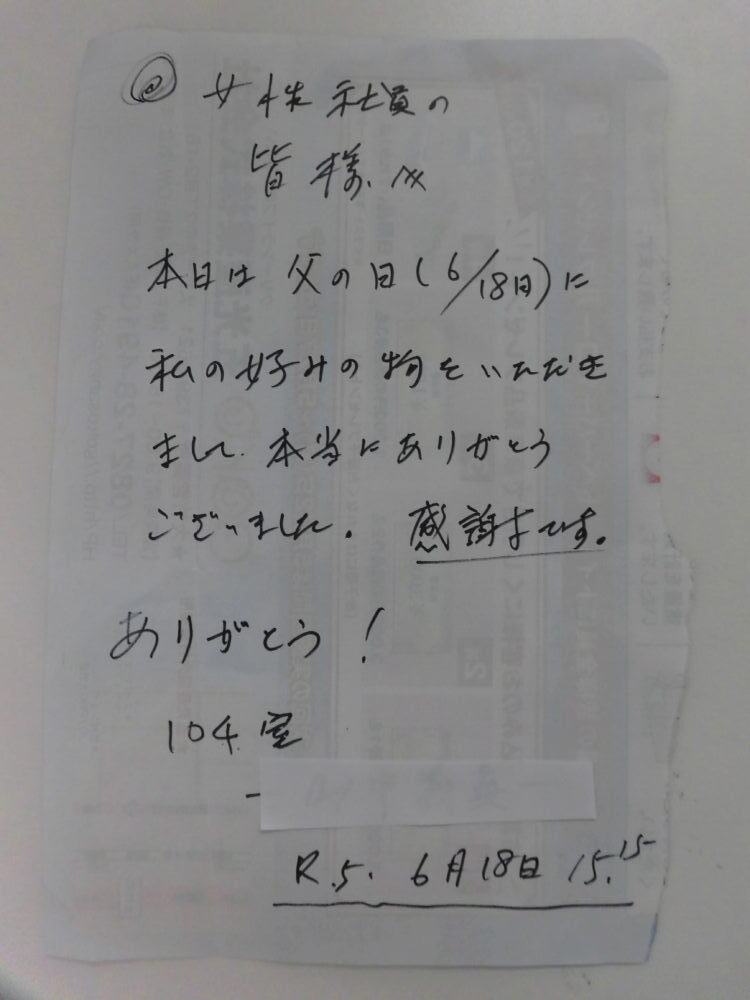 @ 女性社員の
皆様へ
本日は父の日(6/18日)に
私の好みの物をいただき
まして.本当にありがとう
ございました。 感謝です。
ありがとう!
104室
R.5. 6月18日 15.15